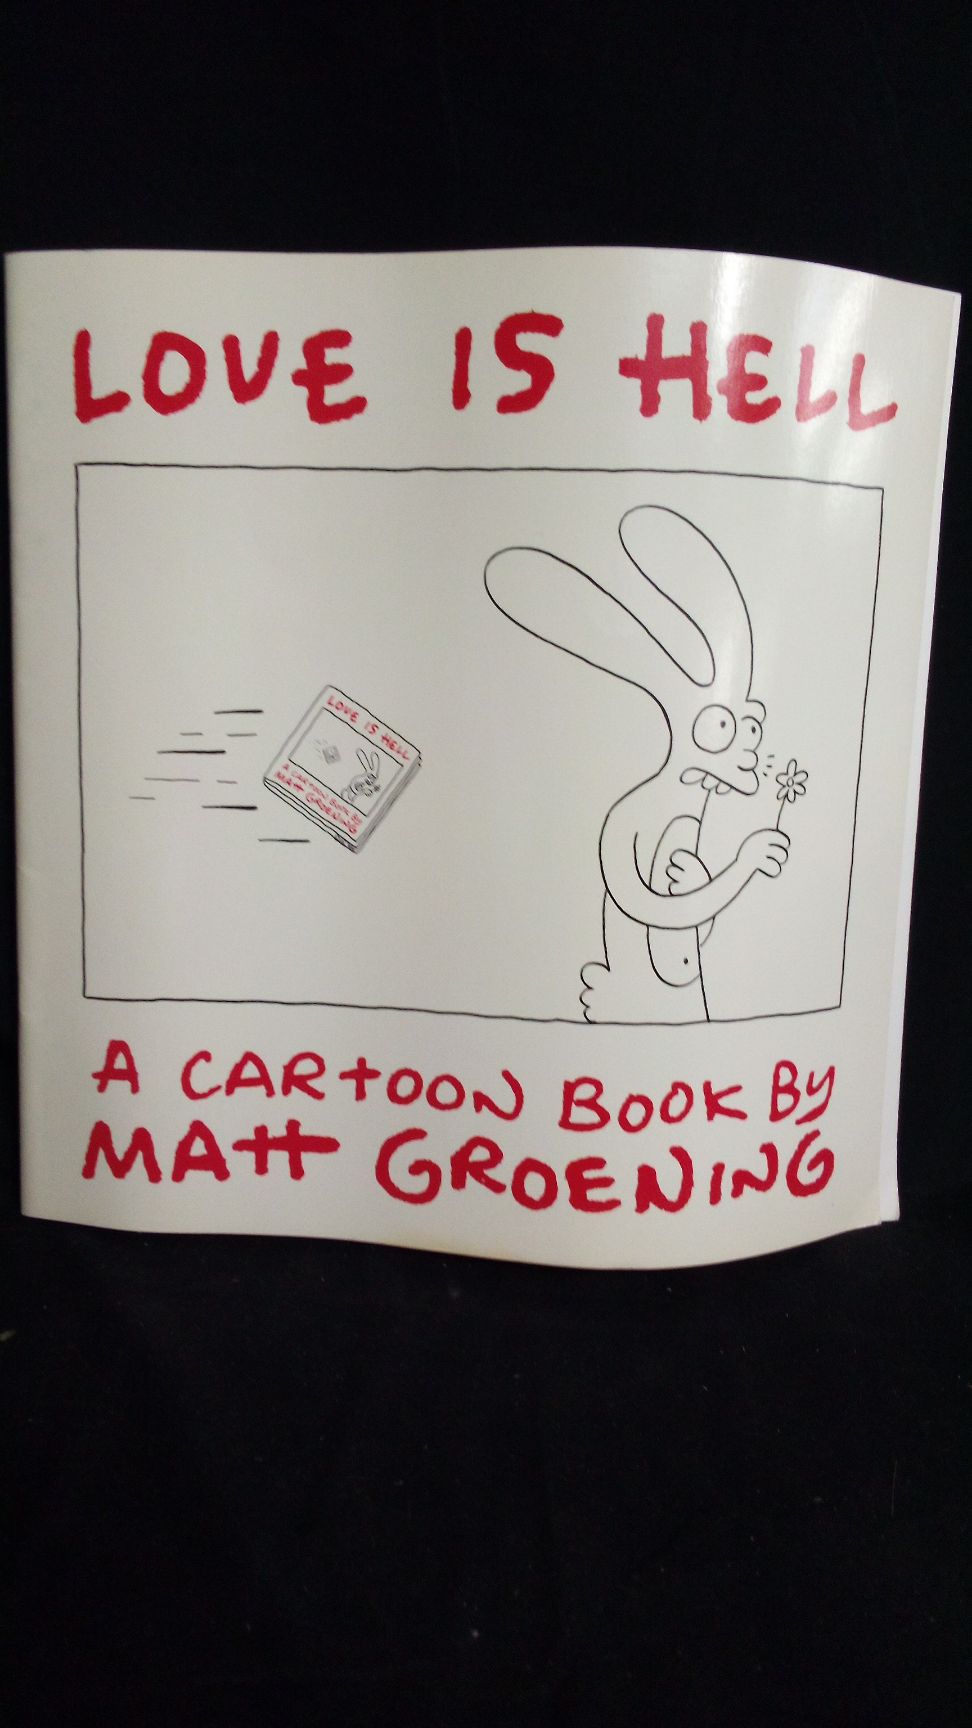 LOVE IS HELL
LOVE IS HELL
A CARTOON BOOK BY
MATT GROENING
A CARTOON BOOK BY
MATT GROENING